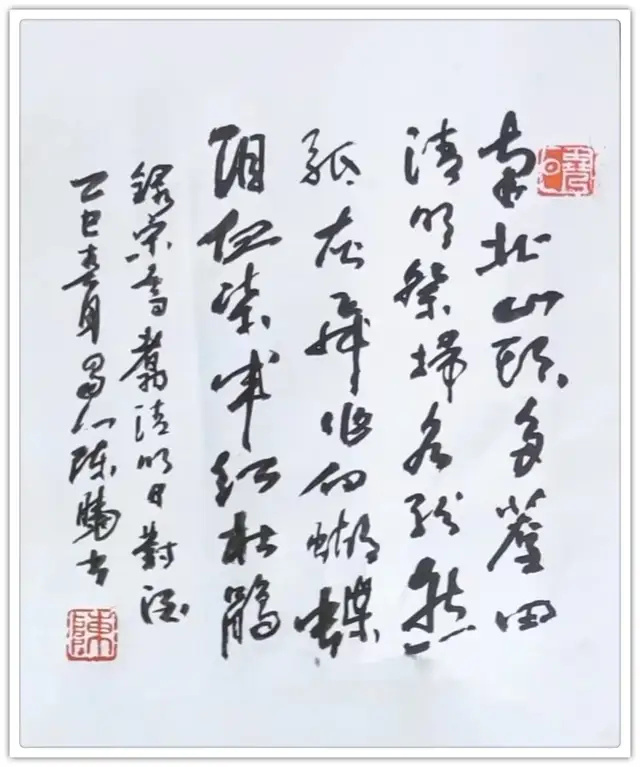 曉
南北山頭多墓田
清明祭掃各紛然
紙灰飛作白蝴蝶
泪血染成紅杜鵑
錄宋高翥清明日對酒
乙巳春月蜀人陳曉書
陳